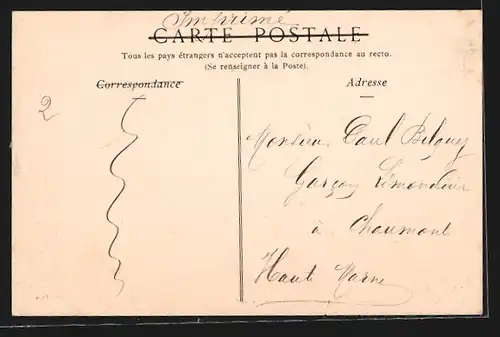 Imprimé
CARTE POSTALE
Tous les pays étrangers n'acceptent pas la correspondance au recto.
(Se renseigner à la Poste).
Correspondance
Adresse
2
Monsieur Paul
Garçon Limonadier
à Chaumont
Haute Marne